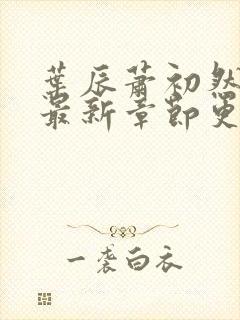 葉辰蕭初然
最新章節更
一袭白衣